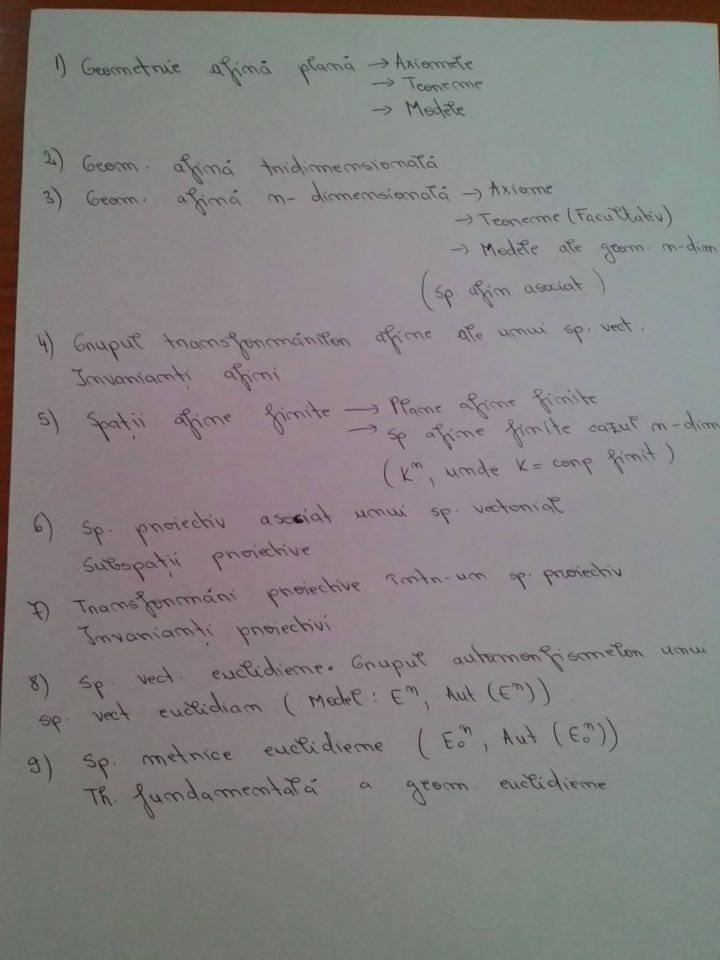 1) Geometrie afină plană → Axiomele
→ Teoreme
→ Modele
2) Geom. afină tridimensională
3) Geom. afină n-dimensională → Axiome
→ Teoreme (Facultativ)
→ Modele ale geom. n-dim
(sp. afin asociat)
4) Grupul transformărilor afine ale unui sp. vect.
Invarianți afini
5) Spații afine finite → Plane afine finite
→ sp afine finite cazul n-dim
(Kⁿ, unde K = corp finit)
6) Sp. proiectiv asociat unui sp. vectorial
Subspații proiective
7) Transformări proiective într-un sp. proiectiv
Invarianți proiectivi
8) Sp. vect. euclidiene. Grupul automorfismelor unui
sp. vect euclidian (Model: Eⁿ, Aut (Eⁿ)).
9) Sp. metrice euclidiene (E₀ⁿ, Aut (E₀ⁿ))
Th. fundamentală a geom. euclidiene